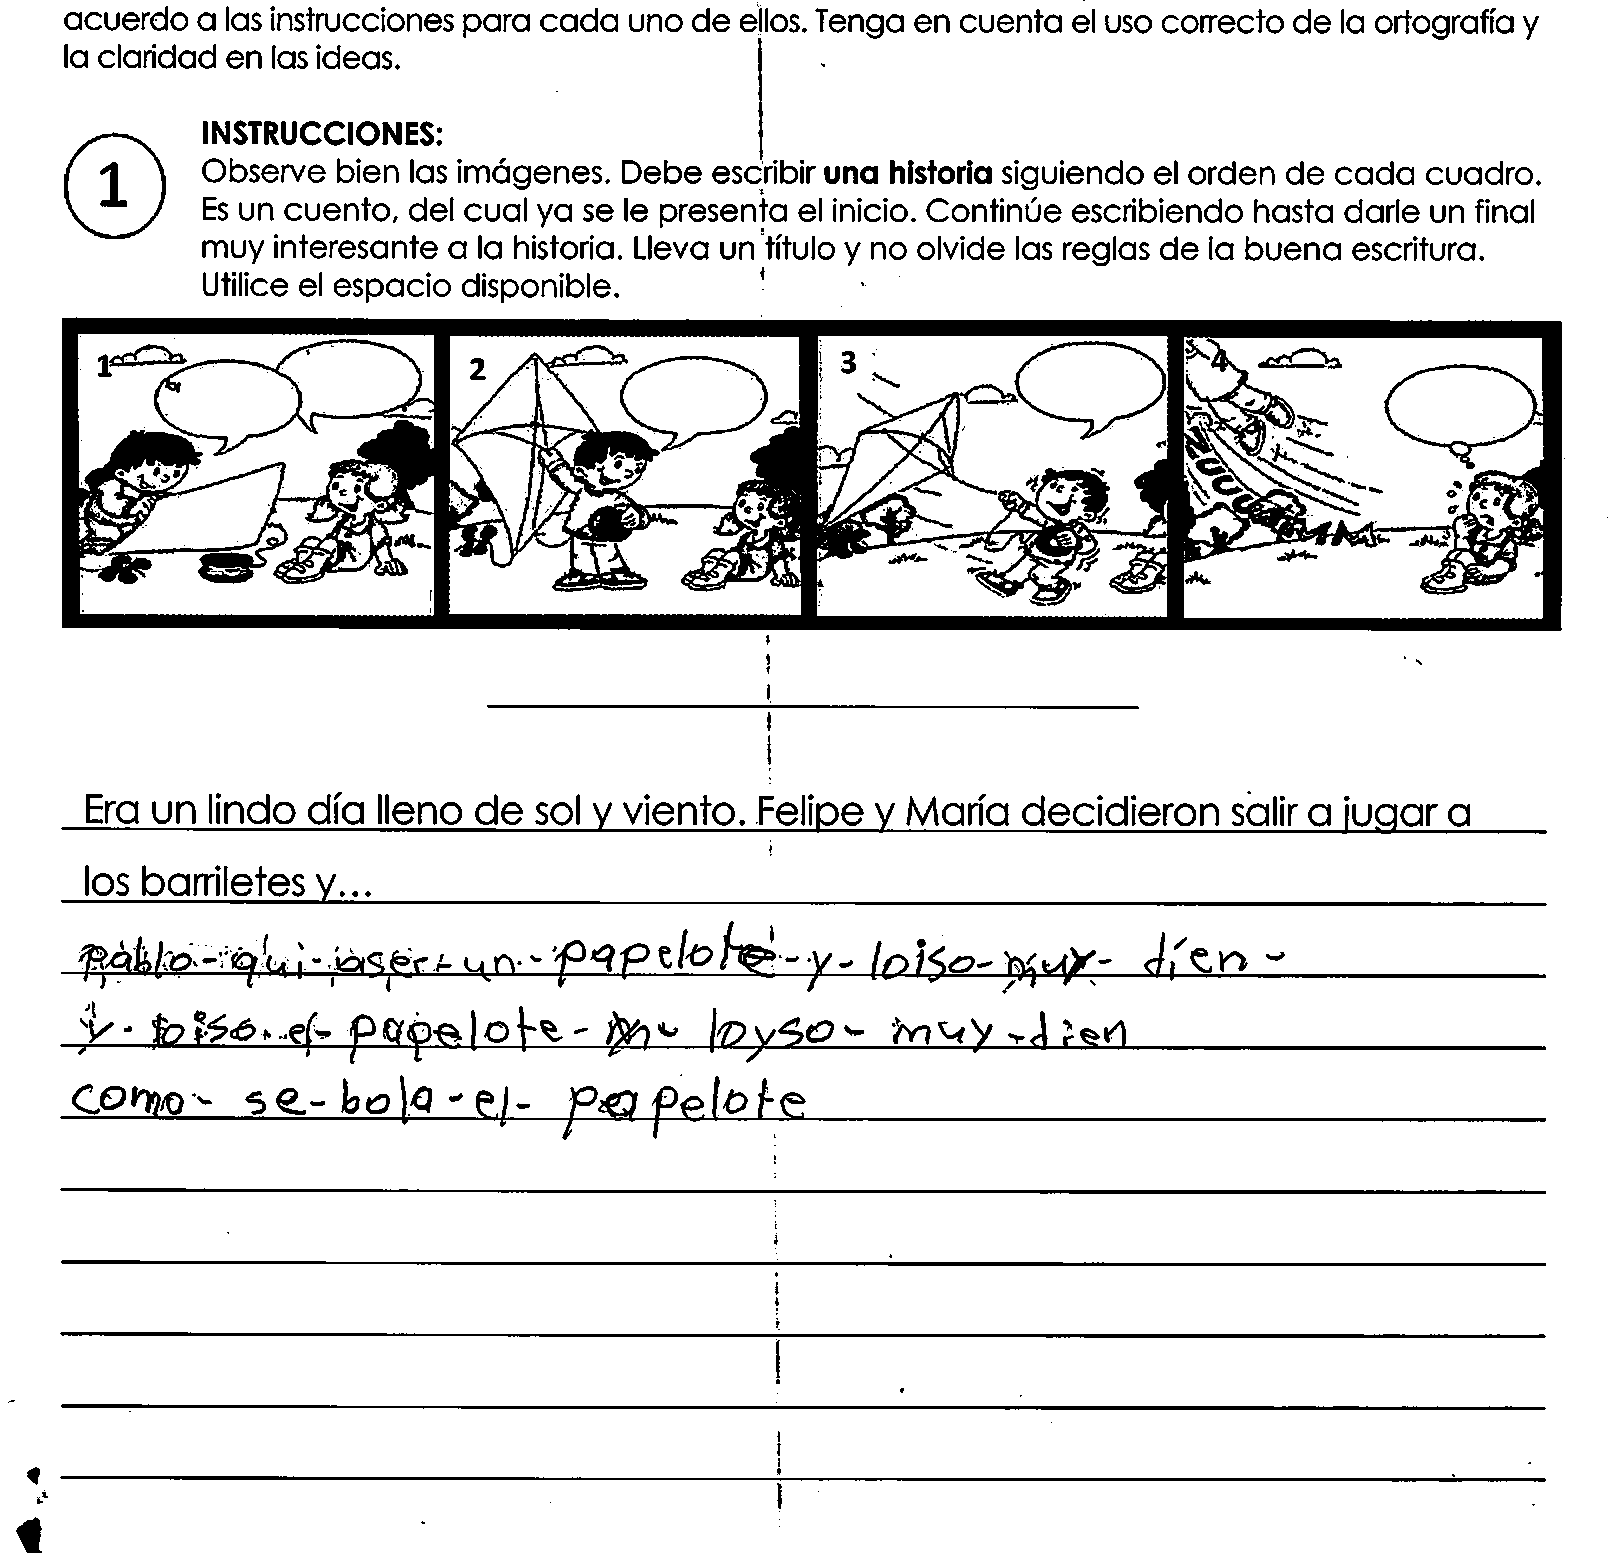 acuerdo a las instrucciones para cada uno de ellos. Tenga en cuenta el uso correcto de la ortografía y
la claridad en las ideas.
1
INSTRUCCIONES:
Observe bien las imágenes. Debe escribir una historia siguiendo el orden de cada cuadro.
Es un cuento, del cual ya se le presenta el inicio. Continúe escribiendo hasta darle un final
muy interesante a la historia. Lleva un título y no olvide las reglas de la buena escritura.
Utilice el espacio disponible.
1 2 3 4
Era un lindo día lleno de sol y viento. Felipe y María decidieron salir a jugar a
los barriletes y...
pablo - qui - aser - un - papelote - y - loiso - muy - dien -
y - loiso - el - papelote - loyso - muy - dien
como - se - bola - el - papelote